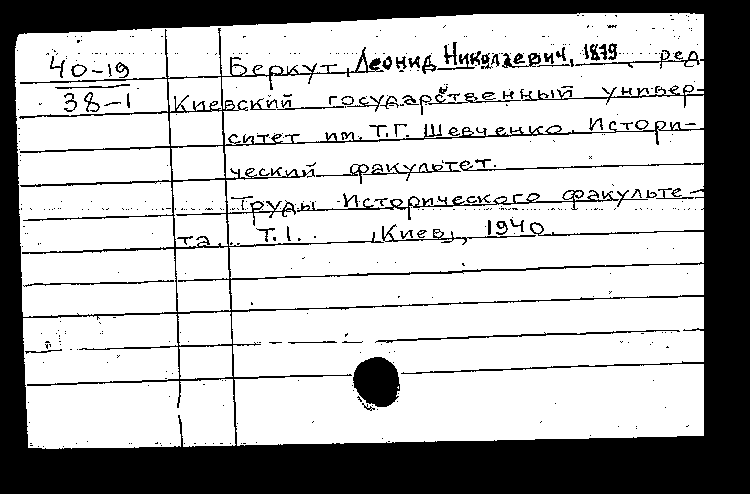 40-19
38-1
Беркут, Леонид Николаевич, 1879 , ред.
Киевский государственный универ-
ситет им. Т.Г. Шевченко. Истори-
ческий факультет.
Труды Исторического факульте-
та. Т.1. [Киев], 1940.